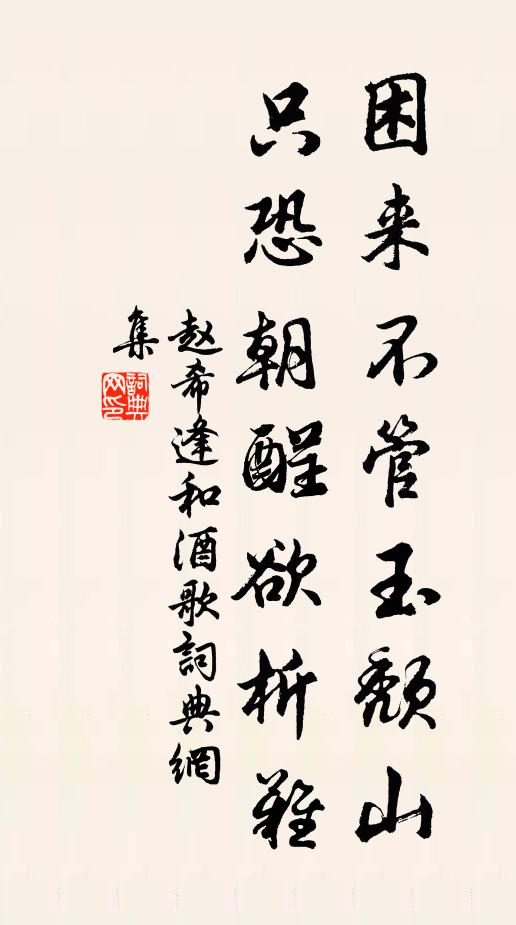 困来不管玉颓山
只恐朝酲欲析难
赵希逢和酒歌詞典網
集
詞典
网印